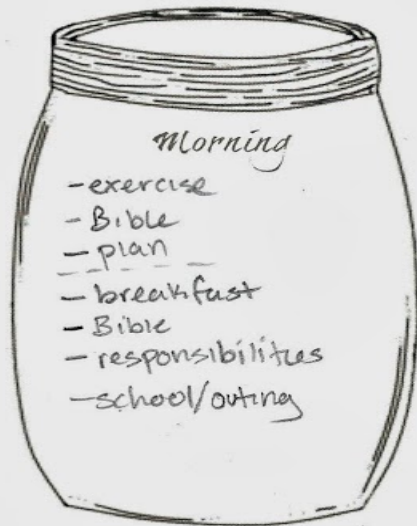 Morning
- exercise
- Bible
- plan
- breakfast
- Bible
- responsibilities
- school/outing